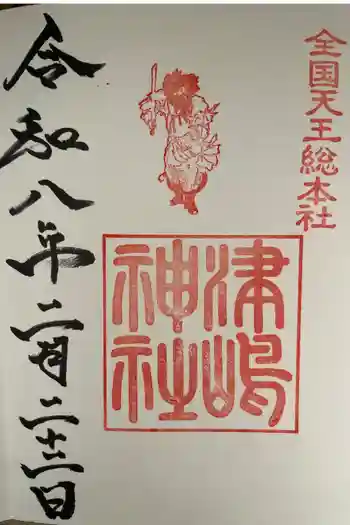 全国天王総本社
津嶋
神社
令和八年二月二十三日